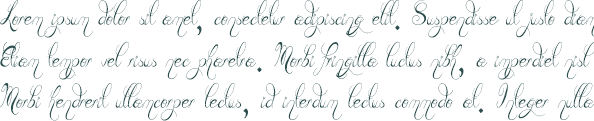 Lorem ipsum dolor sit amet, consectetur adipiscing elit. Suspendisse ut justo diam
Etiam tempor vel risus nec pharetra. Morbi fringilla luctus nibh, a imperdiet nisl
Morbi hendrerit ullamcorper lectus, id interdum lectus commodo at. Integer nulla